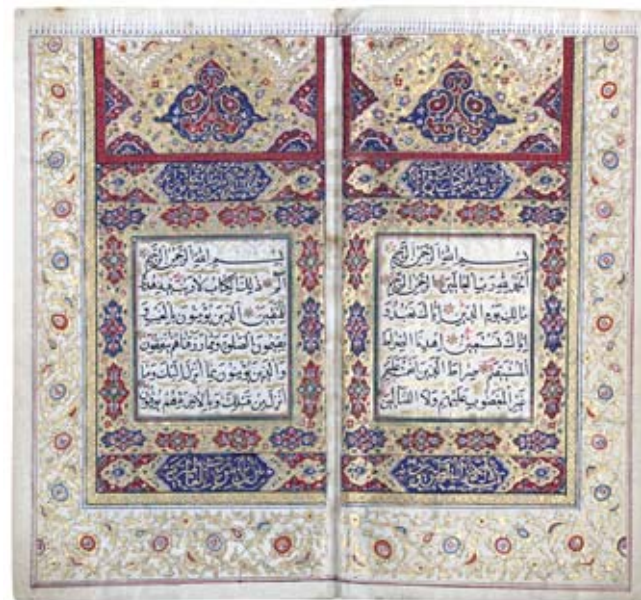 بسم الله الرحمن الرحيم
الحمد لله رب العالمين الرحمن الرحيم
مالك يوم الدين إياك نعبد و
إياك نستعين اهدنا الصراط
المستقيم صراط الذين أنعمت عليهم
غير المغضوب عليهم ولا الضالين
بسم الله الرحمن الرحيم
الم ذلك الكتاب لا ريب فيه هدى
للمتقين الذين يؤمنون بالغيب و
يقيمون الصلوة ومما رزقناهم ينفقون
والذين يؤمنون بما أنزل إليك وما
أنزل من قبلك وبالآخرة هم يوقنون